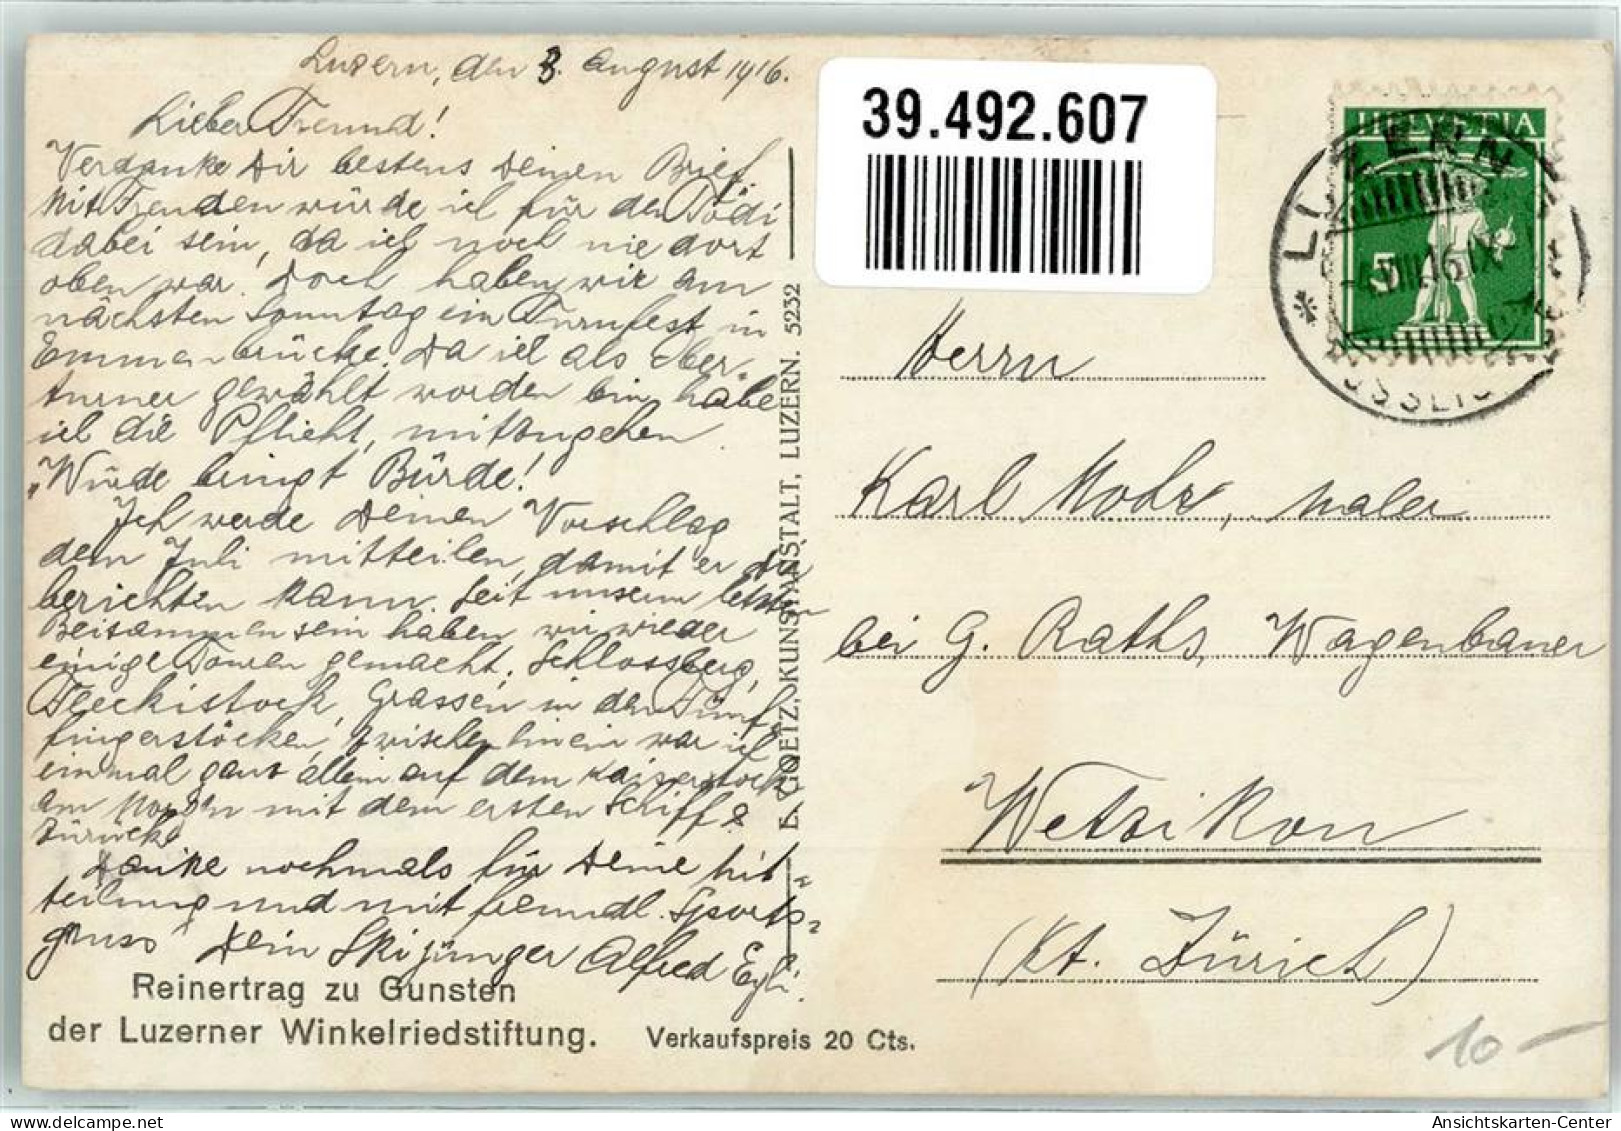 Luzern, den 3. August 1916.
Lieber Freund!
Verdanke Dir bestens Deinen Brief.
Mit Freuden würde ich für den Tödi
dabei sein, da ich noch nie dort
oben war. Doch haben wir am
nächsten Sonntag ein Turnfest in
Emmenbrücke. Da ich als Ober-
turner gewählt worden bin, habe
ich die Pflicht, mitzugehen.
"Würde bringt Bürde!
Ich werde Deinen Vorschlag
dem Juli mitteilen, damit er dir
berichten kann. Seit unserm letzten
Beisammensein haben wir wieder
einige Touren gemacht. Schlossberg,
Fleckistock, Grassen in den Fünf-
fingerstöcken, zwischenhinein war ich
einmal ganz allein auf dem Kaiserstock
am Morgen mit dem ersten Schiff
zurück
Danke nochmals für Deine Mit-
teilung und mit freundl. Sports-
gruss Dein Skijünger Alfred Egli.
Reinertrag zu Gunsten
der Luzerner Winkelriedstiftung. Verkaufspreis 20 Cts.
E. GOETZ, KUNSTANSTALT, LUZERN. 5232
39.492.607
HELVETIA
5
LUZERN
4.VIII.16.IX
Herrn
Karl Mohr, Maler
bei G. Raths, Wagenbauer
Wetzikon
(Kt. Zürich)
10-
Ansichtskarten-Center